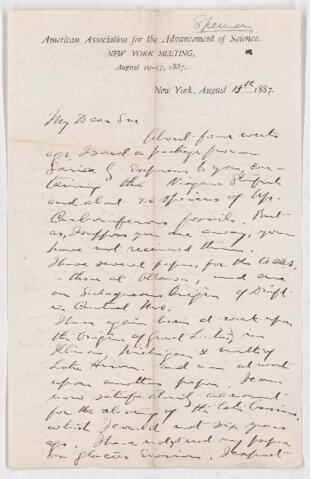 Spencer
American Association for the Advancement of Science.
NEW YORK MEETING,
August 10-17, 1887.
New York, August 15th 1887.
My Dear Sir.
About four weeks
ago, I send a package from
to you, con-
taining the Niagara
and about 20 species of Up.
Carboniferous fossils. But
as, I suppose you are away, you
have not received them.
I have several papers, for the A.A.A.S.
and one
on Subaqueous Origin of Drift
in Central Mo.
I have again been at work upon
the Origin of Great Lakes, in
Illinois, Michigan & north of
Lake Huron. and am at work
upon another paper. I can
now satisfactorily account
for the
which I could not six years
ago. I have my paper
on Glacier Erosion.